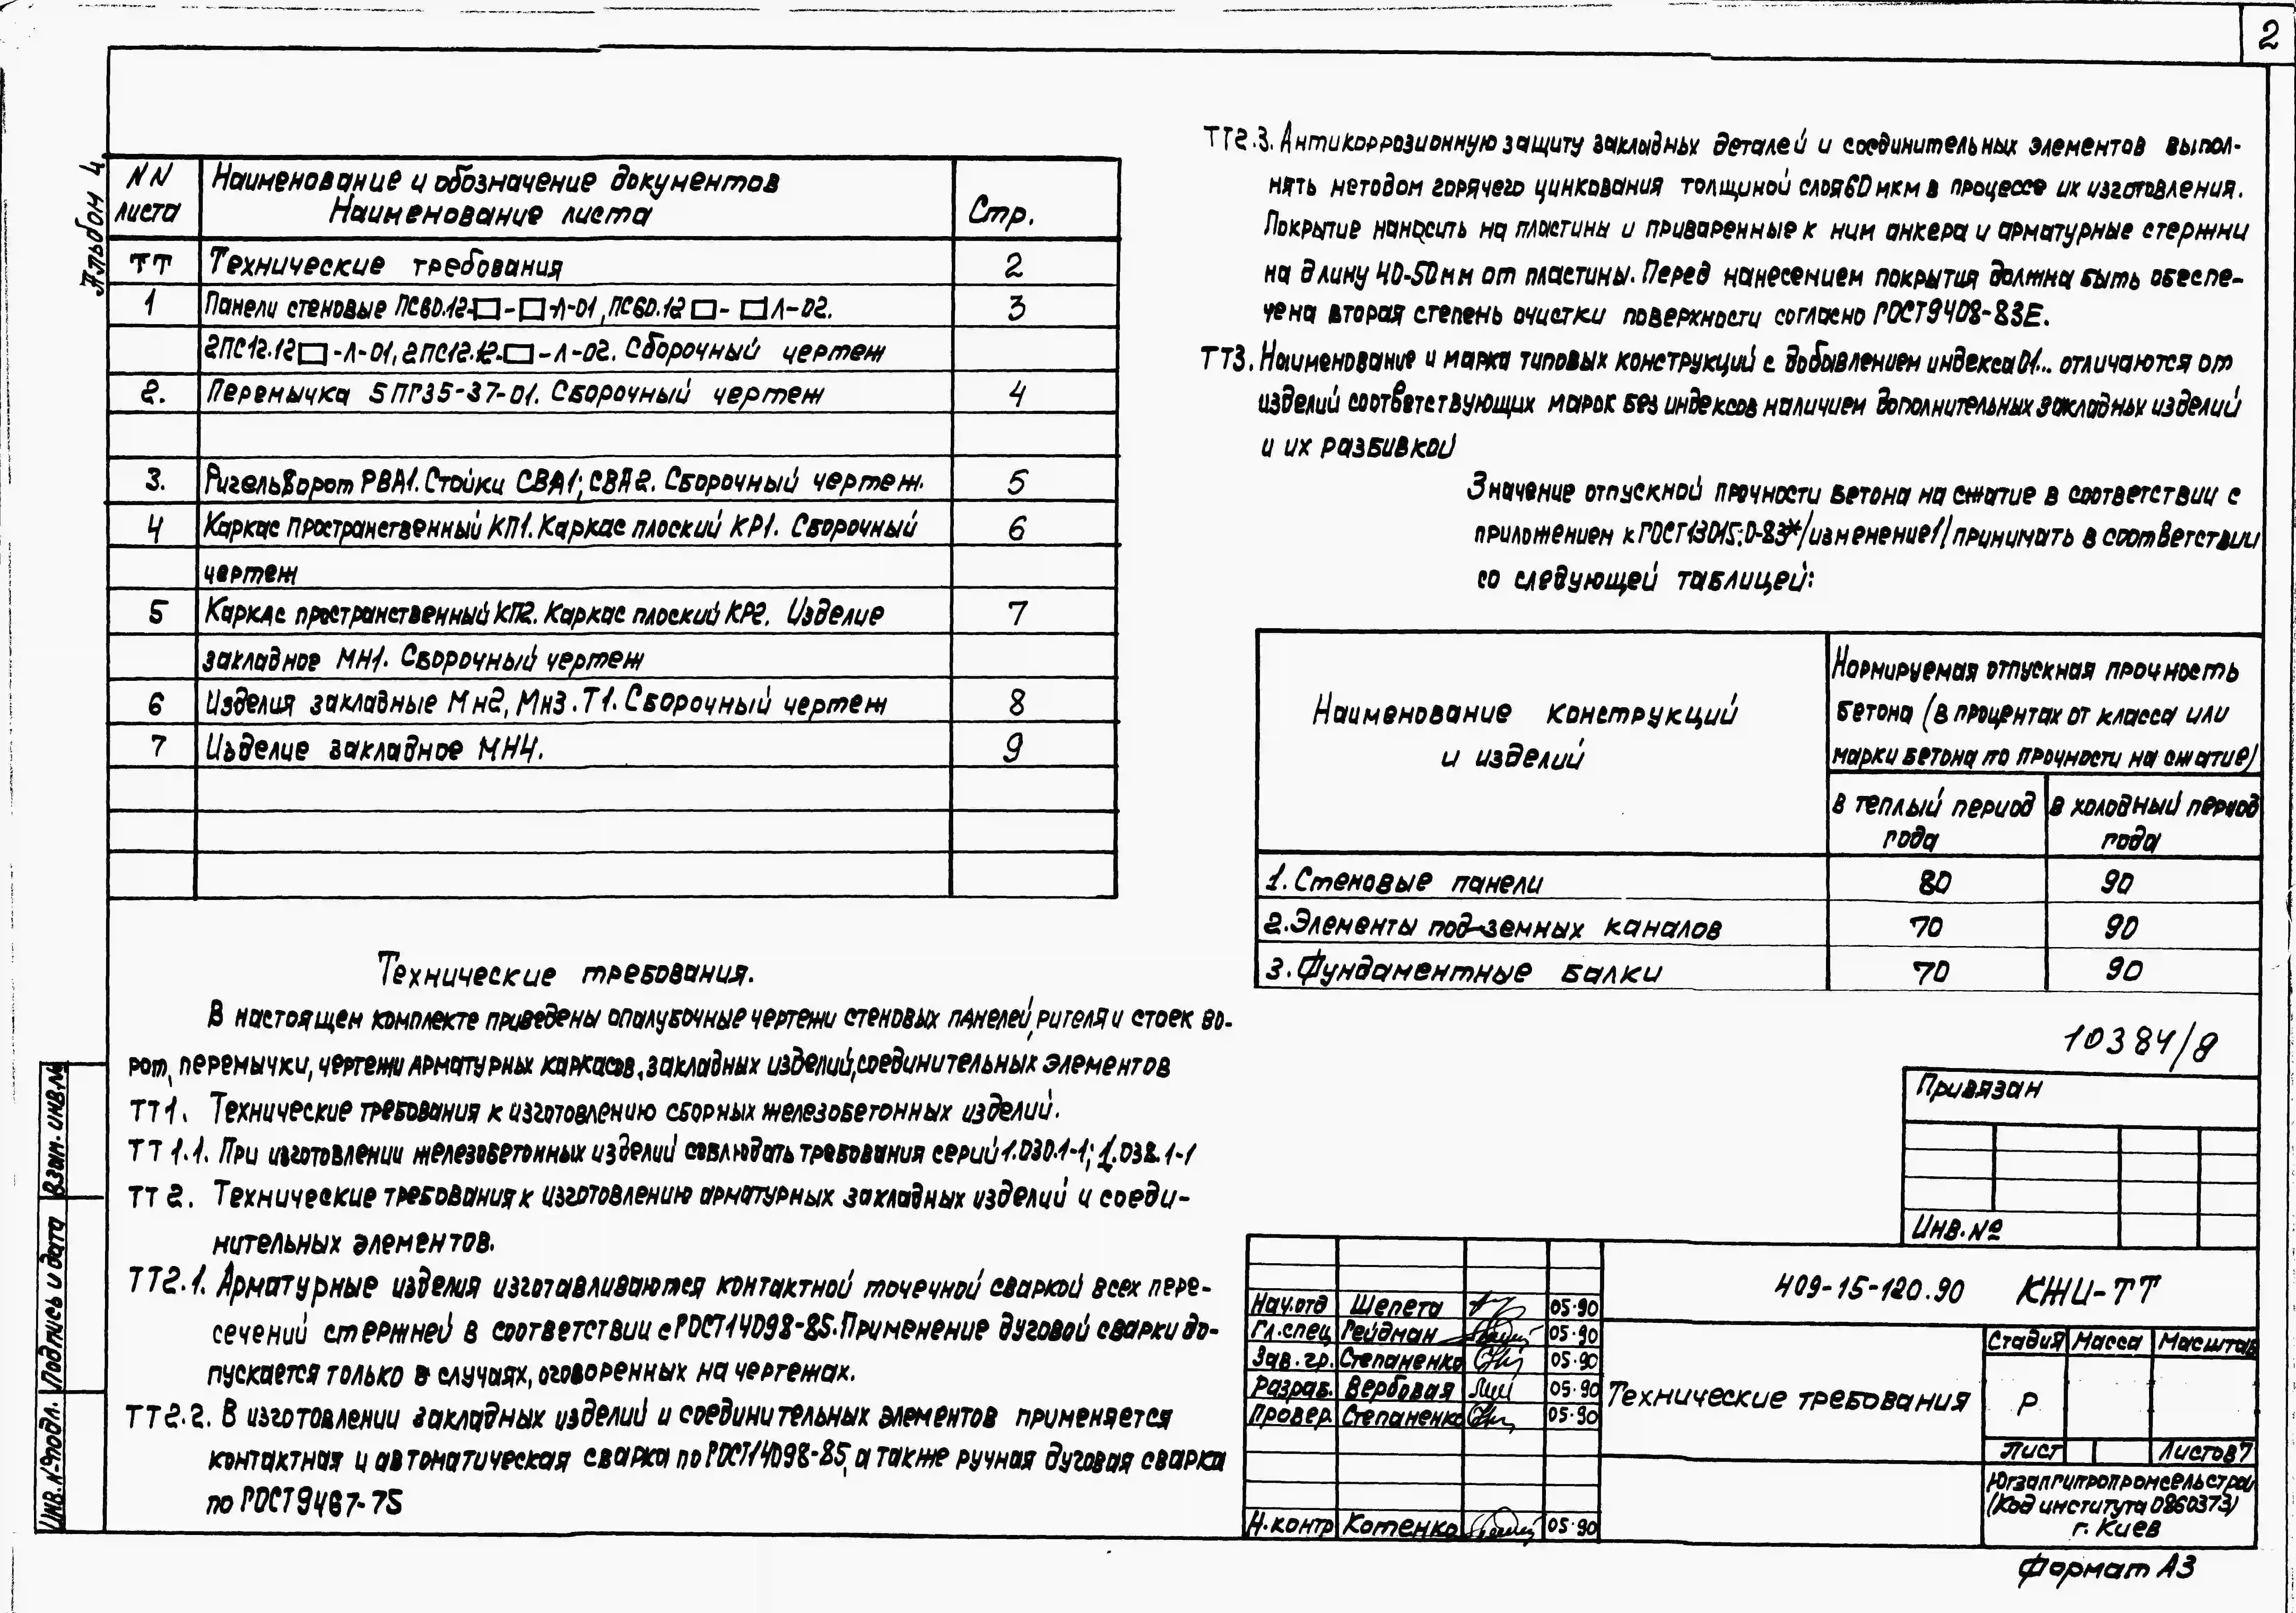 2
Альбом 4
NN Наименование и обозначение документов
листа Наименование листа Стр.
ТТ Технические требования 2
1 Панели стеновые ПС60.12-□-□-Л-01, ПС60.12□-□Л-02. 3
2ПС12.12□-Л-01, 2ПС12.12.□-Л-02. Сборочный чертеж
2. Перемычка 5ПГ35-37-01. Сборочный чертеж 4
3. Ригель ворот РВА1. Стойки СВА1; СВА2. Сборочный чертеж. 5
4 Каркас пространственный КП1. Каркас плоский КР1. Сборочный 6
чертеж
5 Каркас пространственный КП2. Каркас плоский КР2. Изделие 7
закладное МН1. Сборочный чертеж
6 Изделия закладные Мн2, Мн3. Т1. Сборочный чертеж 8
7 Изделие закладное МН4. 9
Технические требования.
В настоящем комплекте приведены опалубочные чертежи стеновых панелей, ригеля и стоек во-
рот, перемычки, чертежи арматурных каркасов, закладных изделий, соединительных элементов
ТТ1. Технические требования к изготовлению сборных железобетонных изделий.
ТТ1.1. При изготовлении железобетонных изделий соблюдать требования серий 1.030.1-1; 1.038.1-1
ТТ2. Технические требования к изготовлению арматурных закладных изделий и соеди-
нительных элементов.
ТТ2.1. Арматурные изделия изготавливаются контактной точечной сваркой всех пере-
сечений стержней в соответствии с ГОСТ14098-85. Применение дуговой сварки до-
пускается только в случаях, оговоренных на чертежах.
ТТ2.2. В изготовлении закладных изделий и соединительных элементов применяется
контактная и автоматическая сварка по ГОСТ14098-85, а также ручная дуговая сварка
по ГОСТ9467-75
ТТ2.3. Антикоррозионную защиту закладных деталей и соединительных элементов выпол-
нять методом горячего цинкования толщиной слоя 60мкм в процессе их изготовления.
Покрытие наносить на пластины и приваренные к ним анкера и арматурные стержни
на длину 40-50мм от пластины. Перед нанесением покрытия должна быть обеспе-
чена вторая степень очистки поверхности согласно ГОСТ9408-83Е.
ТТ3. Наименование и марка типовых конструкций с добавлением индекса 01... отличаются от
изделий соответствующих марок без индексов наличием дополнительных закладных изделий
и их разбивкой
Значение отпускной прочности бетона на сжатие в соответствии с
приложением к ГОСТ13015.0-83*/изменение1/ принимать в соответствии
со следующей таблицей:
Наименование конструкций
и изделий
Нормируемая отпускная прочность
бетона (в процентах от класса или
марки бетона по прочности на сжатие)
в теплый период года
в холодный период года
1. Стеновые панели 80 90
2. Элементы подземных каналов 70 90
3. Фундаментные балки 70 90
10384/8
Привязан
Инв.№
409-15-120.90 КЖИ-ТТ
Нач.отд Шепета 05.90
Гл.спец Гейдман 05.90
Зав.гр. Степаненко 05.90
Разраб. Вербовая 05.90
Провер. Степаненко 05.90
Н.контр Котенко 05.90
Технические требования
Стадия Масса Масштаб
Р
Лист Листов 7
Югзапгипропромсельстрой
(Код института 0860373)
г. Киев
Формат А3
Взам.инв.№
Подпись и дата
Инв.№подл.